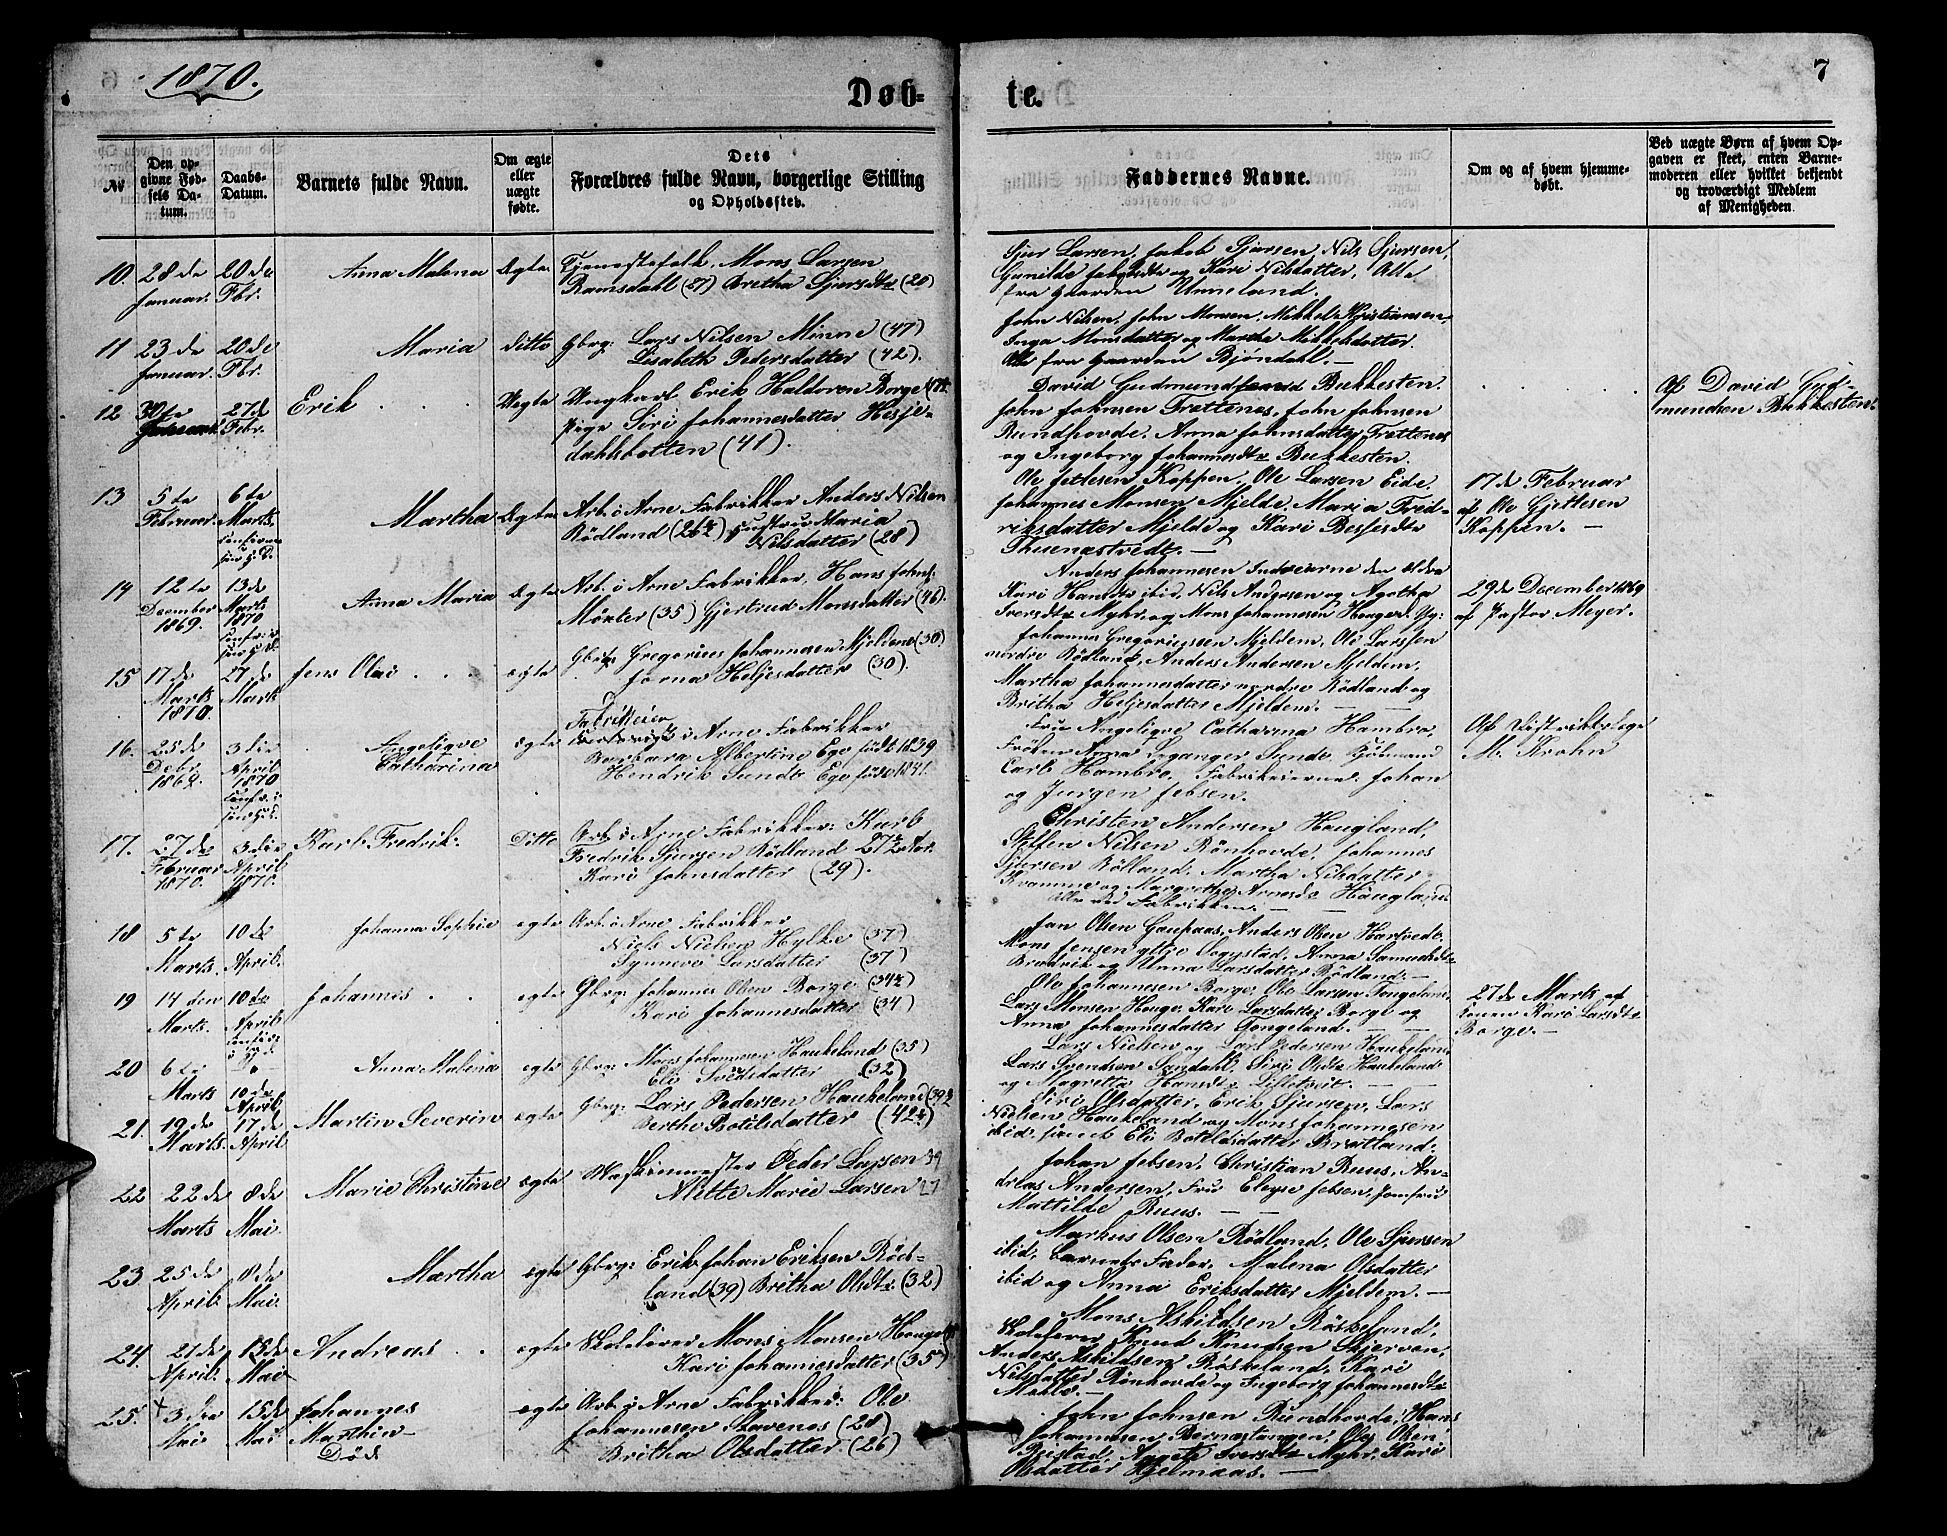 1870.
7
Døb-
te.
№
Den op-
givne Fød-
sels Da-
tum.
Daabs-
Datum.
Barnets fulde Navn.
Om ægte
eller
uægte
fødte.
Dets
Forældres fulde Navn, borgerlige Stilling
og Opholdssted.
Faddernes Navne.
Om og af hvem hjemme-
døbt.
Ved uægte Børn af hvem Op-
gaven er skeet, enten Barne-
moderen eller hvilket bekjendt
og troværdigt Medlem
af Menigheden.
10. 28de Januar. 20de Fbr. Anna Malena Ægte
Tjenestefolk. Mons Larsen
Ramsdahl (27) Bretha Sjursdtr (20)
Sjur Larsen, Jakob Sjursen, Nils Sjursen,
Gunilde og Kari Nilsdatter, Alle
fra Gaarden Unneland.
11 23de Januar. 20de Fbr. Maria ditto
Gbrg: Lars Nilsen Minne (47)
Lisabeth Pedersdatter (42).
John Nilsen, John Monsen, Mikkel Kristiansen,
Inga Monsdatter og Marthe Mikkelsdatter.
Alle fra Gaarden Bjøndahl.
12 30te Januar. 27de Febr. Erik Uægte
Ungkarl Erik Haldoren Borge
Pige Siri Johannesdatter Hesje-
dahlsbotten (41).
David Gudmundsen Bukkesten.
John Johnsen Trettenes, John Johnsen
Rundhovde, Anna Johnsdatter Trettenes
og Ingeborg Johannesdtr Bukkesten.
Af David Gud-
mundsen Bukkesten.
13 5te Februar. 6te Marts. Martha Ægte
Arb. i Arne Fabrikker Anders Nilsen
Rödland (26½) Hustru Maria
Nilsdatter (28)
Ole Jetlesen Koppen, Ole Larsen Eide.
Johannes Monsen Mjelde, Maria Fred-
riksdatter Mjelde og Kari
Thuenæstvedt.
17de Februar
af Ole Gjetlesen
Koppen.
14 12te December 1869. 13de Marts 1870 Anna Maria Ægte
Arb: i Arne Fabrikker, Hans Johns:
Mönter (35) Gjertrud Monsdatter (46).
Anders Johannesen Indveierne den ældre
Kari Hansdtr ibid, Nils Andersen og Agatha
Iversdtr Myhr, og Mons Johannesen Houger
29de December 1869
af Pastor Meyer.
15 17de Marts 1870. 27de Marts Jens Olai ægte
Gbr: Gregorius Johannesen Mjeldem (30)
Heljesdatter (30).
Johannes Gregoriussen Mjeldem, Ole Larssen
nordre Rödland, Anders Andersen Mjeldem.
Martha Johannesdatter nordre Rödland og
Britha Heljesdatter Mjeldem.
16. 25de Debr 3die April 1870 Angeligve Catharina ægte
Fabrikeier i Arne Fabrikker
Barbara Albertine Ege født 1839
Hendrik Sundt Ege født 1841.
Fru Angeligve Catharina Hambro,
Fröken Anna Leganger Sunde
Carl Hambro, Fabrikeierne: Johan
og Jurgen Jebsen.
Af Distriktslæge
M. Krohn
17. 27de Februar 1870. 3die April 1870. Karl Fredrik. Ditto
Arb: i Arne Fabrikker: Karl
Fredrik Sjursen Rödland 27½ Aar.
Kari Johnsdatter (29).
Christen Andersen Haugland,
Steffen Nilsen Rönhovde, Johannes
Sjursen Rölland, Martha Nilsdatter
Kvamme og Margrethe Arnesdtr Haugland
Alle ved Fabrikken.
18 5te Marts. 10de April. Johanna Sophie egte
Arb: i Arne Fabrikker
Niels Nielsen Hylke (37)
Synneve Larsdatter (37)
Jan Olsen Gaupaas, Anders Olsen Hartvedt,
Mons Jensen ytre Anna Samuelsdtr
Brudvik og Anna Larsdatter Rödland.
19 14den Marts. 10de April. Johannes egte
Gbrg: Johannes Olsen Borge (34½)
Kari Johannesdatter (34)
Ole Johannesen Borge, Ole Larsen Tongeland,
Lars Monsen Houge, Kari Larsdatter Borge og
Anna Johannesdatter Tongeland.
27de Marts af
Konen Kari Larsdtr
Borge.
20 6te Marts 10de April Anna Malena egte
Gbrg: Mons Johannesen Haukeland (35)
Eli Svedsdatter (32)
Lars Nielsen og Lars Pedersen Haukeland
Lars Svendsen Sandahl, Siri Olsdtr Haukeland
og Magretta Hansdtr
21. 19de Marts. 17de April. Martin Severin egte
Gbrg: Lars Pedersen Haukeland (39½)
Berthe Botilsdatter (42½)
Siri Olsdatter, Erik Sjursen, Lars
Nielsen Haukeland og Mons Johannesen
ibid. samt Eli Boteldsdatter Bratland.
22 22de Marts 8de Mai. Marie Christine ægte
Maskinmester Peder Larsen 39
Mette Marie Larsen 27
Johan Jebsen, Christian Ruus, An-
dreas Andersen, Fru Eleyse Jebsen, Jomfru
Mattilde Ruus.
23 25de April. 8de Mai. Martha egte
Gbrg: Erik Johan Eriksen Röd-
land (39) Britha Olsdtr (32)
Markus Olsen Rödland, Ole Sjursen
ibid, Barnets Fader, Malena Olsdatter
ibid og Anna Eriksdatter Mjeldem.
24. 21de April. 15de Mai Andreas egte
Skolelærer Mons Monsen Houge
Kari Johannesdatter (35)
Mons Asbildsen Röskeland,
Skolelærer Knud Knudsen Skjerven,
Anders Asbildsen Röskeland, Kari
Nilsdatter Rönhovde og Ingeborg Johannesdtr
25. 3die Mai 15de Mai Johannes Marthin Död egte
Arb: i Arne Fabrikker: Ole
Johannesen Stavenes (28)
Britha Olsdatter (26)
John Johnsen Rundhovde, Hans
Johannesen Bernæstangen, Ole Olsen
Reistad, Agate Iversdtr Myhr, Kari
Olsdatter Hjelmaas.